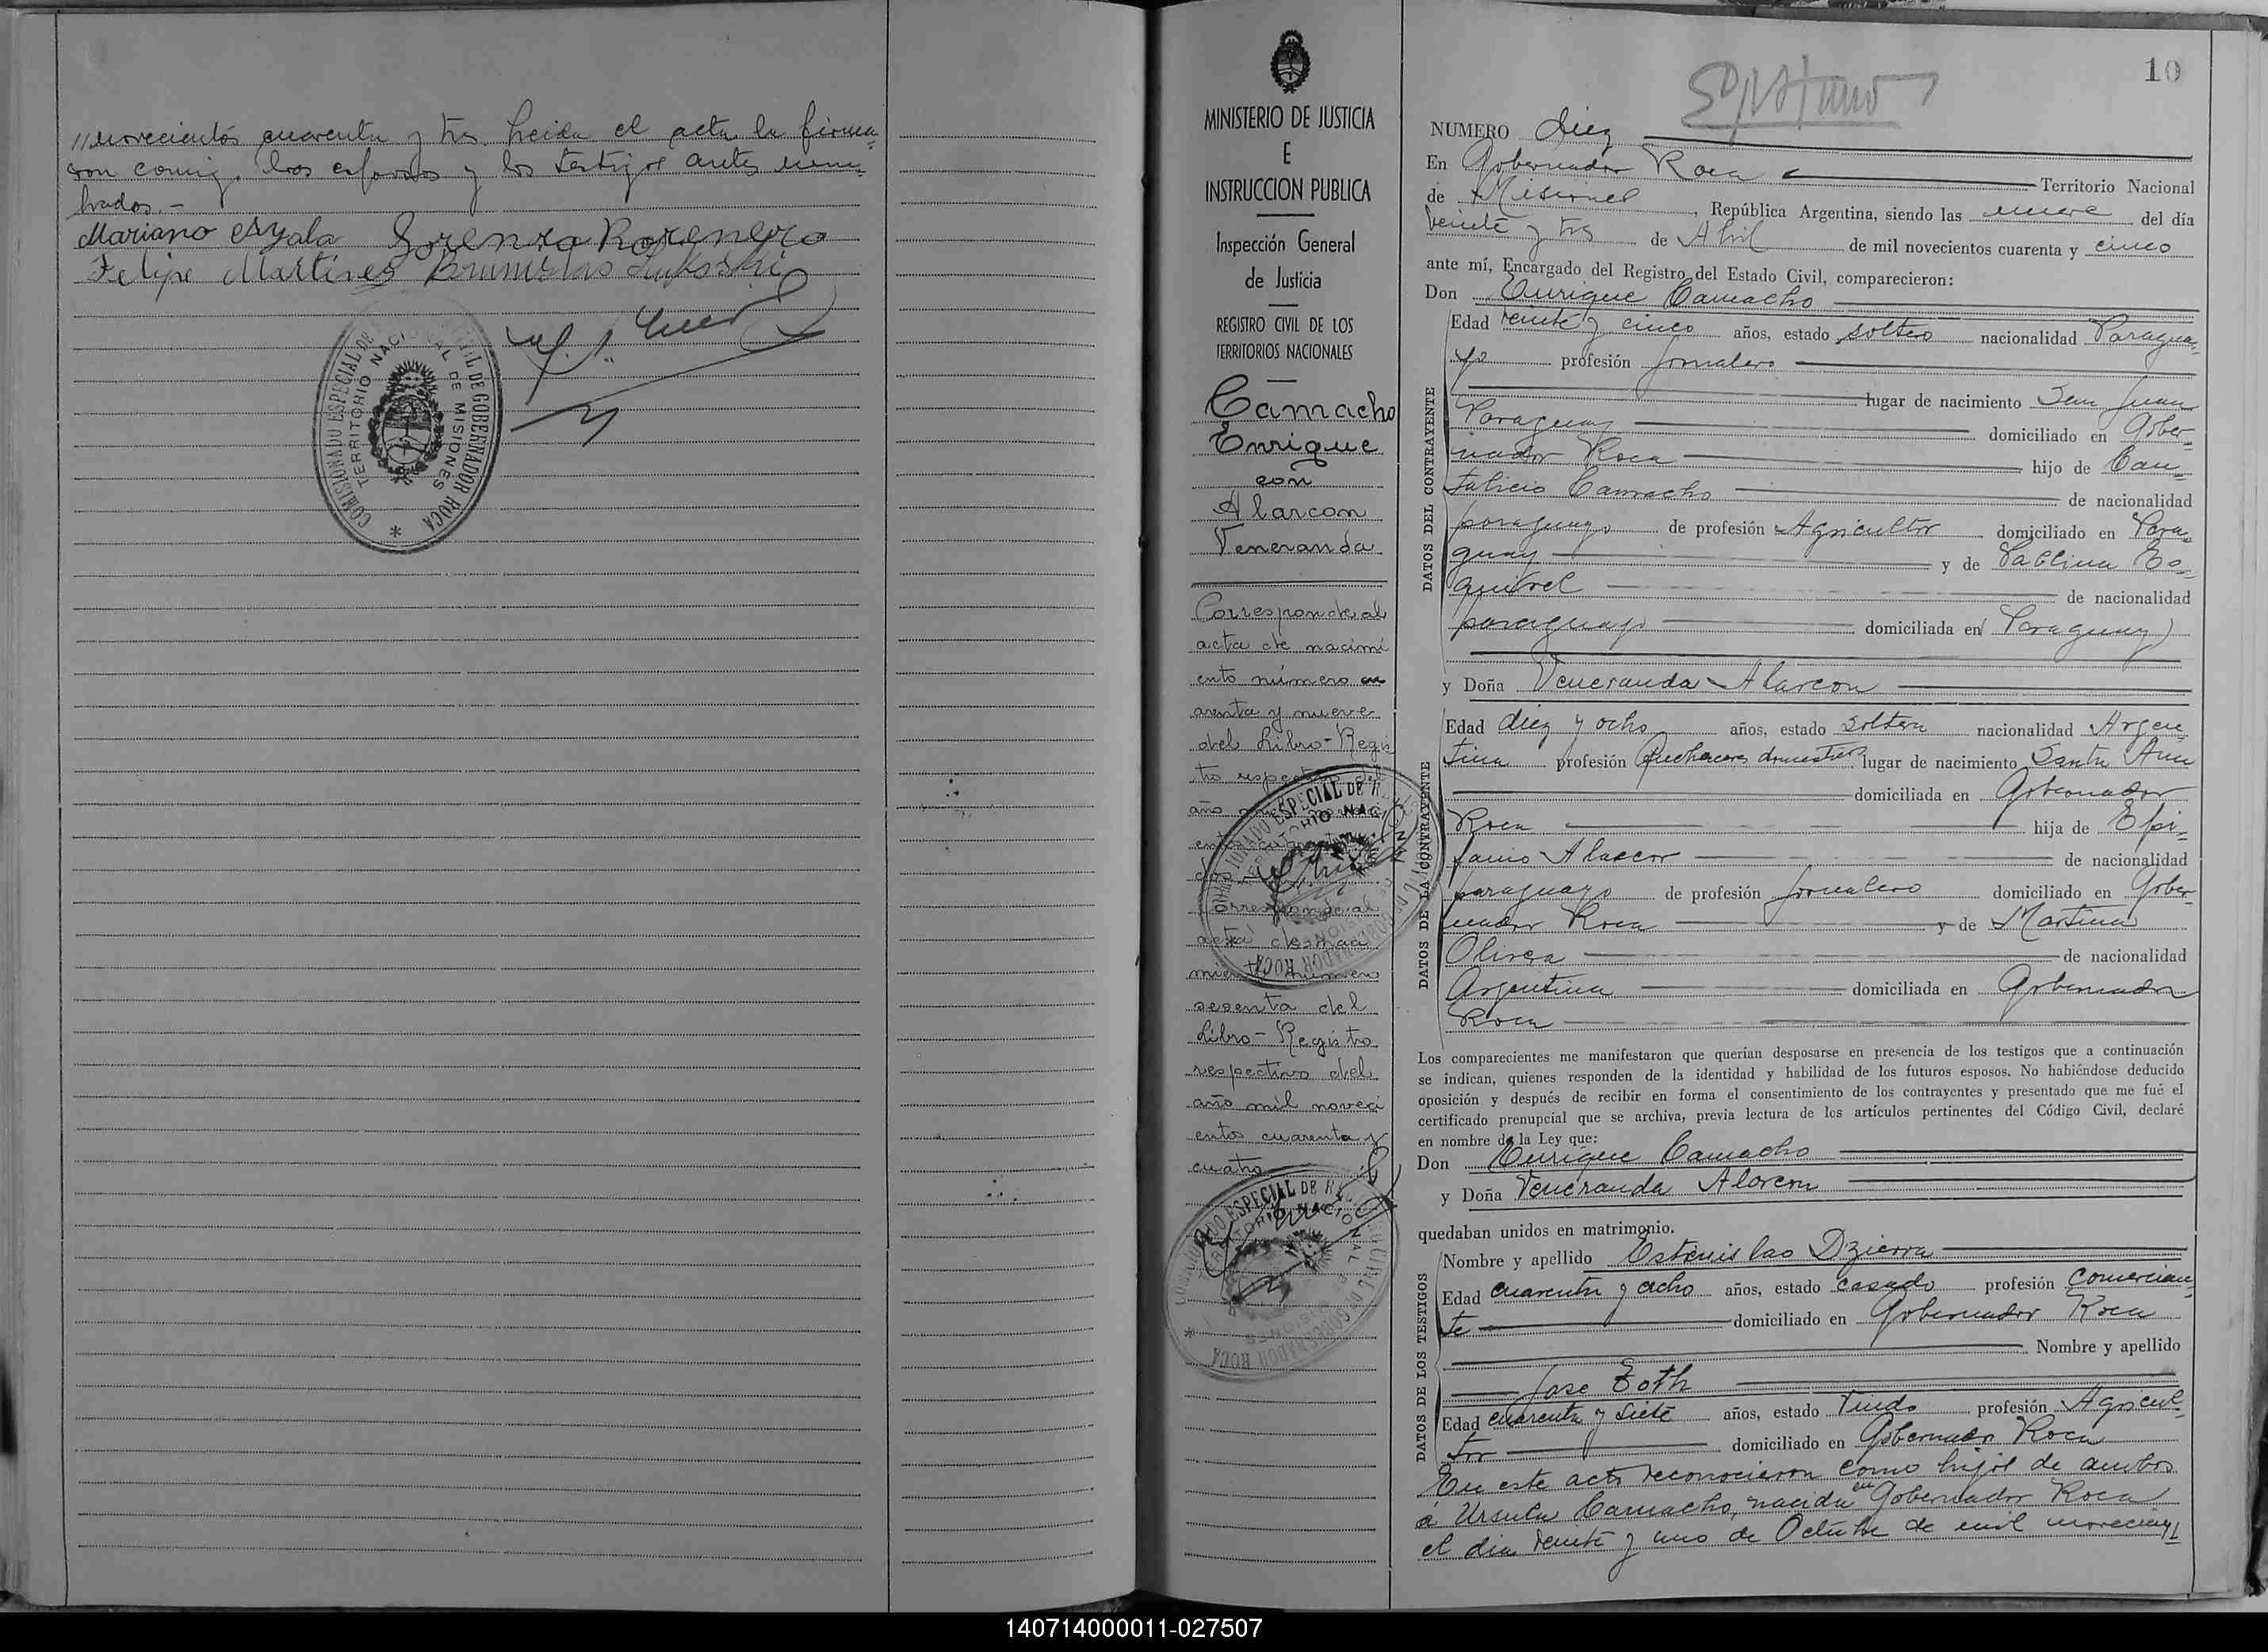 //novecientos cuarenta y tres. Leida el acta la firma=
ron conmigo, los esposos y los testigos antes nom=
brados.-
Mariano Ayala Lorenza
Felipe Martires
COMISIONADO ESPECIAL DE GOBERNADOR ROCA
TERRITORIO NACIONAL DE MISIONES
MINISTERIO DE JUSTICIA
E
INSTRUCCION PUBLICA
Inspección General
de Justicia
REGISTRO CIVIL DE LOS
TERRITORIOS NACIONALES
Camacho
Enrique
con
Alarcon
Veneranda
Corresponde al
acta de nacimi
ento número cu
arenta y nueve
del Libro-Regis
tro respectivo del
año
Corresponde al
acta de naci
miento número
sesenta del
Libro-Registro
respectivo del
año mil noveci
entos cuarenta y
cuatro
10
NUMERO Diez
En Gobernador Roca Territorio Nacional
de Misiones, República Argentina, siendo las nueve del día
veinte y tres de Abril de mil novecientos cuarenta y cinco
ante mí, Encargado del Registro del Estado Civil, comparecieron:
Don Enrique Camacho
DATOS DEL CONTRAYENTE
Edad veinte y cinco años, estado soltero nacionalidad Paragua=
yo profesión Jornalero
lugar de nacimiento San Juan
Paraguay domiciliado en Gober=
nador Roca hijo de Can=
talicio Camacho de nacionalidad
paraguayo de profesión Agricultor domiciliado en Para=
guay y de Pablina Es=
quivel de nacionalidad
paraguayo domiciliada en Paraguay)
y Doña Veneranda Alarcon
DATOS DE LA CONTRAYENTE
Edad diez y ocho años, estado soltera nacionalidad Argen
tina profesión Quehaceres domesticos lugar de nacimiento Santa Ana
domiciliada en Gobernador
Roca hija de Epi=
fanio Alarcon de nacionalidad
paraguayo de profesión jornalero domiciliado en Gober=
nador Roca y de Martina
Olivera de nacionalidad
Argentina domiciliada en Gobernador
Roca
Los comparecientes me manifestaron que querían desposarse en presencia de los testigos que a continuación
se indican, quienes responden de la identidad y habilidad de los futuros esposos. No habiéndose deducido
oposición y después de recibir en forma el consentimiento de los contrayentes y presentado que me fué el
certificado prenupcial que se archiva, previa lectura de los artículos pertinentes del Código Civil, declaré
en nombre de la Ley que:
Don Enrique Camacho
y Doña Veneranda Alarcon
quedaban unidos en matrimonio.
DATOS DE LOS TESTIGOS
Nombre y apellido Estanislao Dzierva
Edad cuarenta y ocho años, estado casado profesión Comercian=
te domiciliado en Gobernador Roca
Nombre y apellido
Jose Toth
Edad cuarenta y siete años, estado Viudo profesión Agricul=
tor domiciliado en Gobernador Roca
En este acto reconocieron como hijos de ambos
a Ursula Camacho, nacida en Gobernador Roca
el dia veinte y uno de Octubre de mil novecien//
140714000011-027507